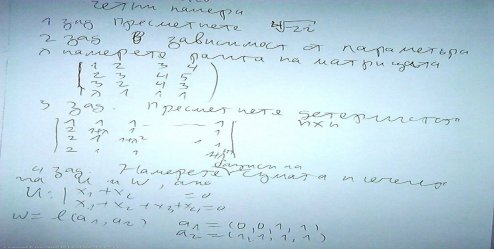 четни номера
1 зад Пресметнете ∜-22
2 зад В зависимост от параметъра
λ намерете ранга на матрицата
1 2 3 4
2 3 4 5
3 2 4 3
λ 1 1 1
3 зад. Пресметнете детерминантата
n×n
1 1 1 --- 1
2 1+λ 1 1
2 1 1+λ² 1
2 1 1
4 зад Намерете сумата и сечение
на U и W, ако
U: | x₁+x₂ = 0
x₁+x₂+x₃+x₄=0
W = l(a₁, a₂) a₁ = (0,0,1,1)
a₂ = (1,1,1,1)